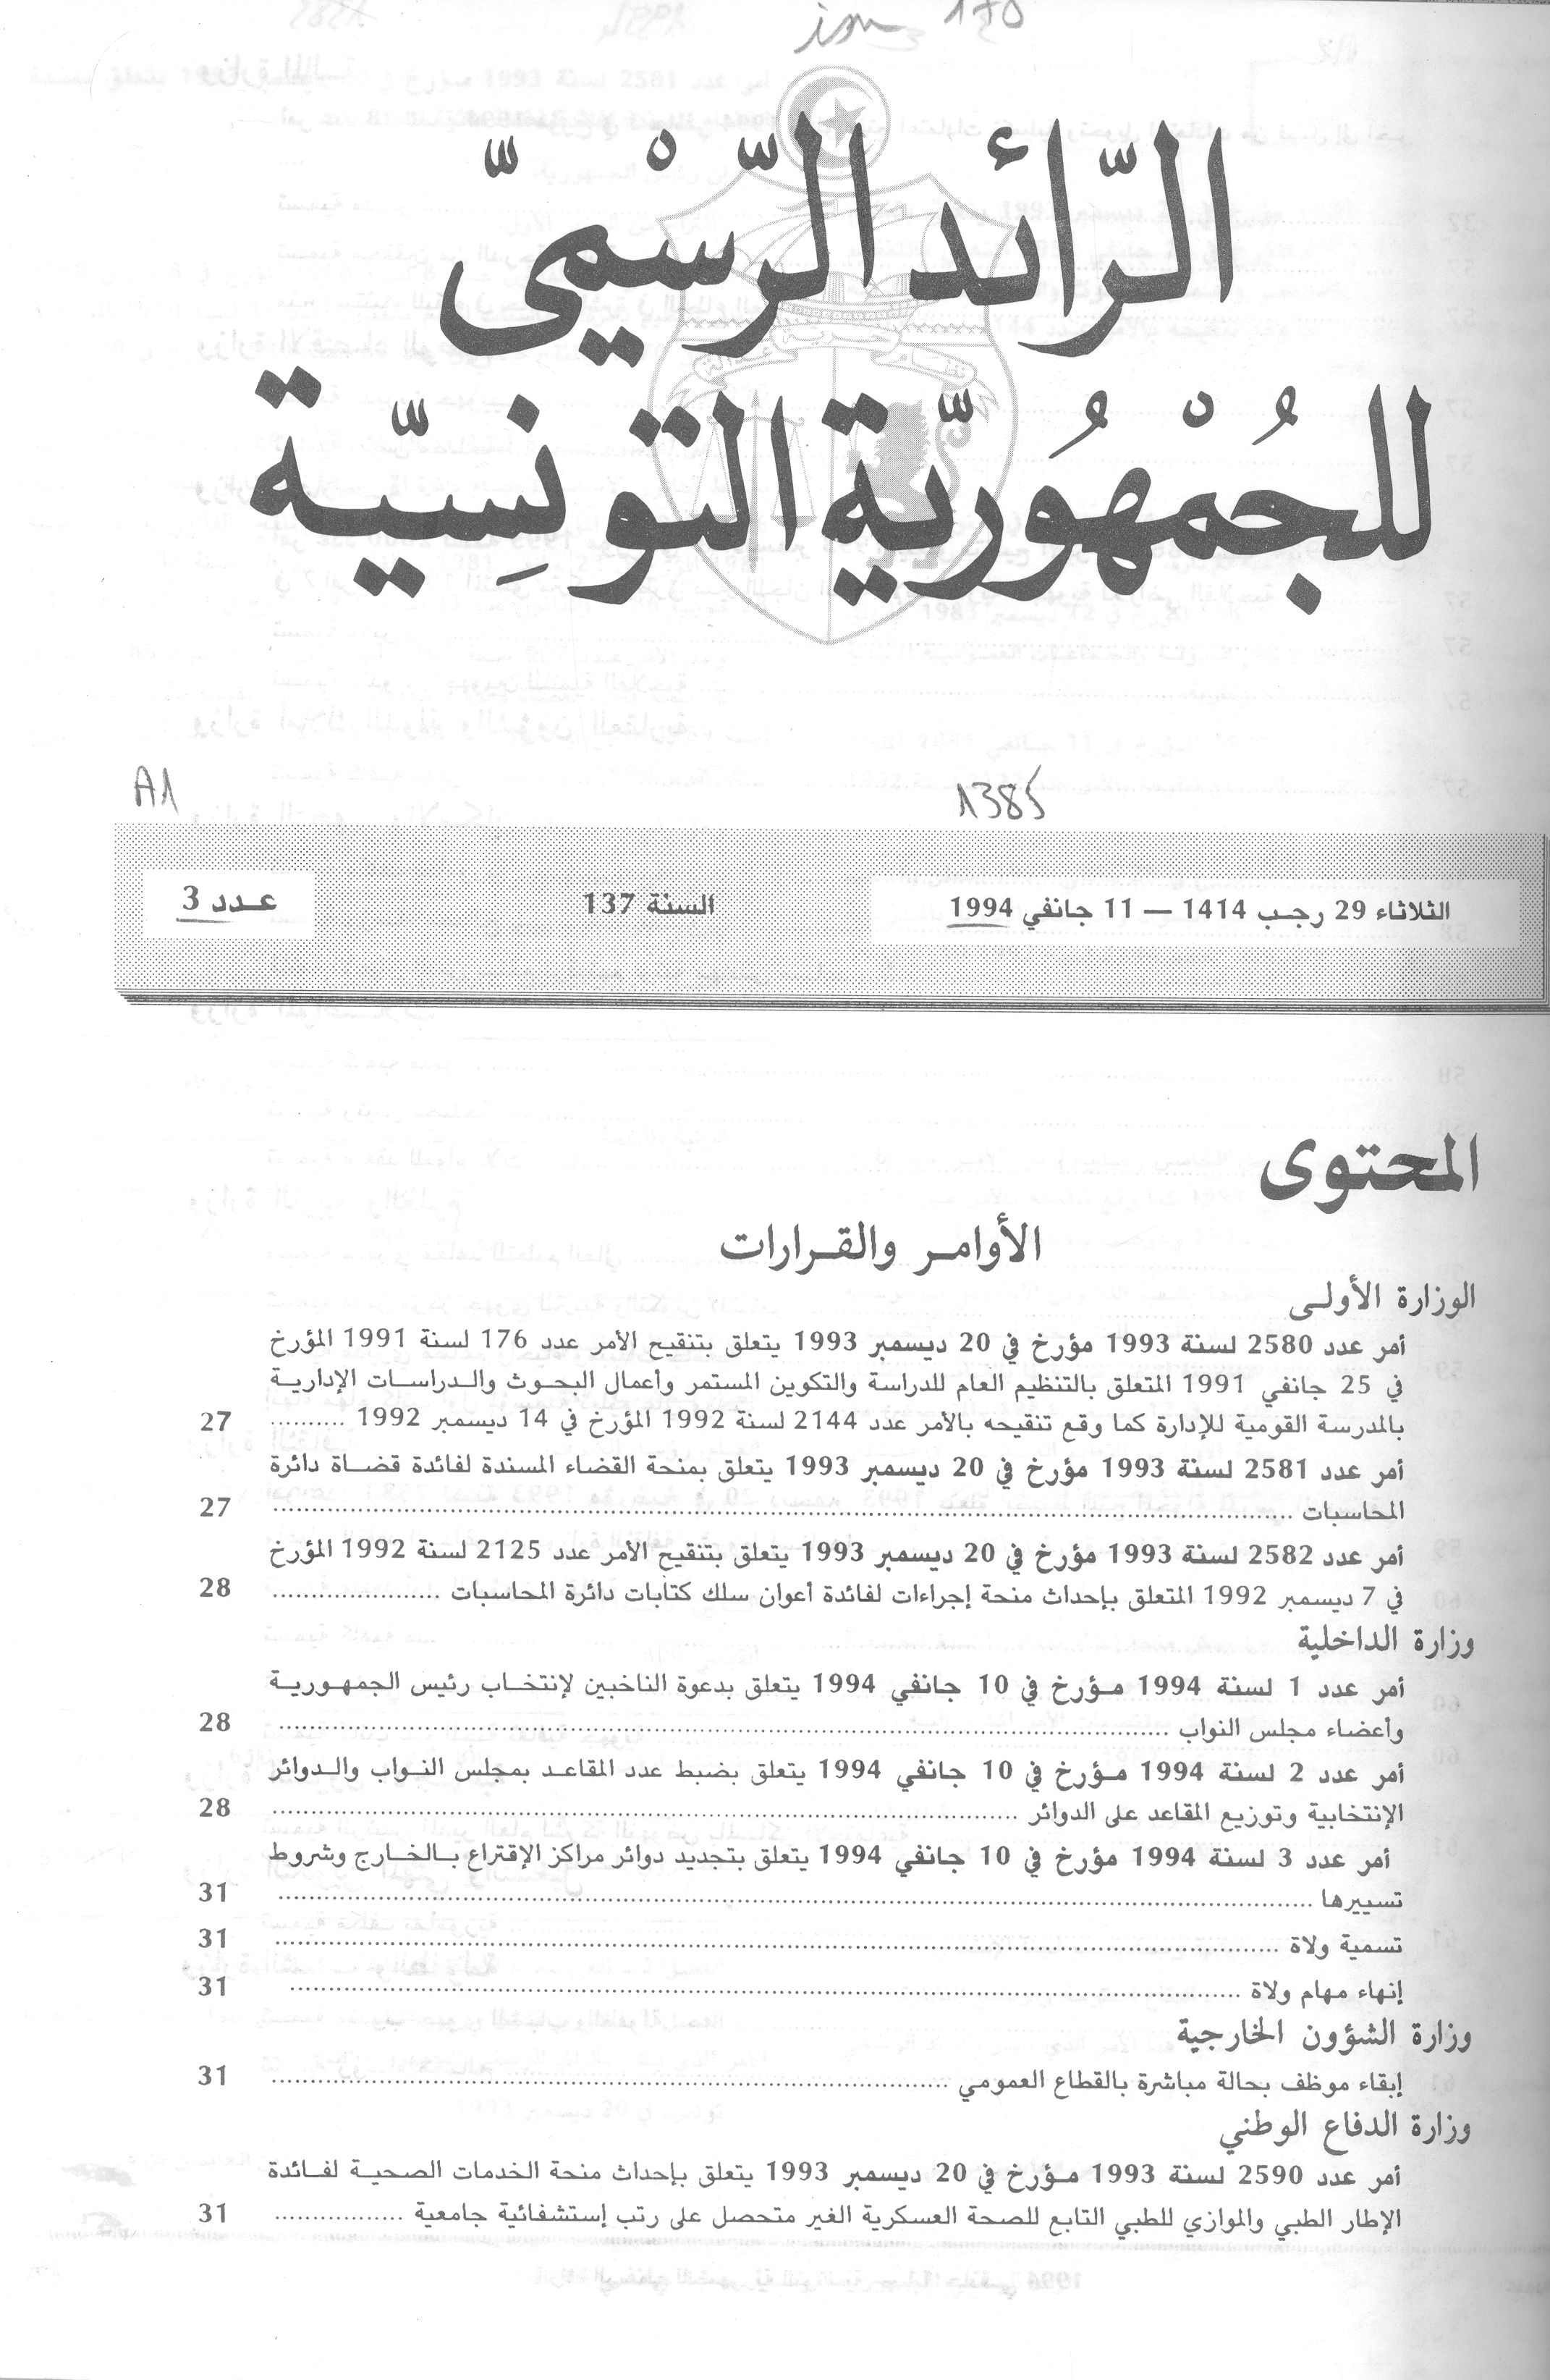 170
الرّائد الرّسْميّ
للجُمْهُوريّة التونِسيّة
نظام حرية عدالة
A1
1385
الثلاثاء 29 رجب 1414 — 11 جانفي 1994
السنة 137
عدد 3
المحتوى
الأوامر والقرارات
الوزارة الأولى
أمر عدد 2580 لسنة 1993 مؤرخ في 20 ديسمبر 1993 يتعلق بتنقيح الأمر عدد 176 لسنة 1991 المؤرخ
في 25 جانفي 1991 المتعلق بالتنظيم العام للدراسة والتكوين المستمر وأعمال البحوث والدراسات الإدارية
بالمدرسة القومية للإدارة كما وقع تنقيحه بالأمر عدد 2144 لسنة 1992 المؤرخ في 14 ديسمبر 1992 .......... 27
أمر عدد 2581 لسنة 1993 مؤرخ في 20 ديسمبر 1993 يتعلق بمنحة القضاء المسندة لفائدة قضاة دائرة
المحاسبات .......... 27
أمر عدد 2582 لسنة 1993 مؤرخ في 20 ديسمبر 1993 يتعلق بتنقيح الأمر عدد 2125 لسنة 1992 المؤرخ
في 7 ديسمبر 1992 المتعلق بإحداث منحة إجراءات لفائدة أعوان سلك كتابات دائرة المحاسبات .......... 28
وزارة الداخلية
أمر عدد 1 لسنة 1994 مؤرخ في 10 جانفي 1994 يتعلق بدعوة الناخبين لإنتخاب رئيس الجمهورية
وأعضاء مجلس النواب .......... 28
أمر عدد 2 لسنة 1994 مؤرخ في 10 جانفي 1994 يتعلق بضبط عدد المقاعد بمجلس النواب والدوائر
الإنتخابية وتوزيع المقاعد على الدوائر .......... 28
أمر عدد 3 لسنة 1994 مؤرخ في 10 جانفي 1994 يتعلق بتجديد دوائر مراكز الإقتراع بالخارج وشروط
تسييرها .......... 31
تسمية ولاة .......... 31
إنهاء مهام ولاة .......... 31
وزارة الشؤون الخارجية
إبقاء موظف بحالة مباشرة بالقطاع العمومي .......... 31
وزارة الدفاع الوطني
أمر عدد 2590 لسنة 1993 مؤرخ في 20 ديسمبر 1993 يتعلق بإحداث منحة الخدمات الصحية لفائدة
الإطار الطبي والموازي للطبي التابع للصحة العسكرية الغير متحصل على رتب إستشفائية جامعية .......... 31